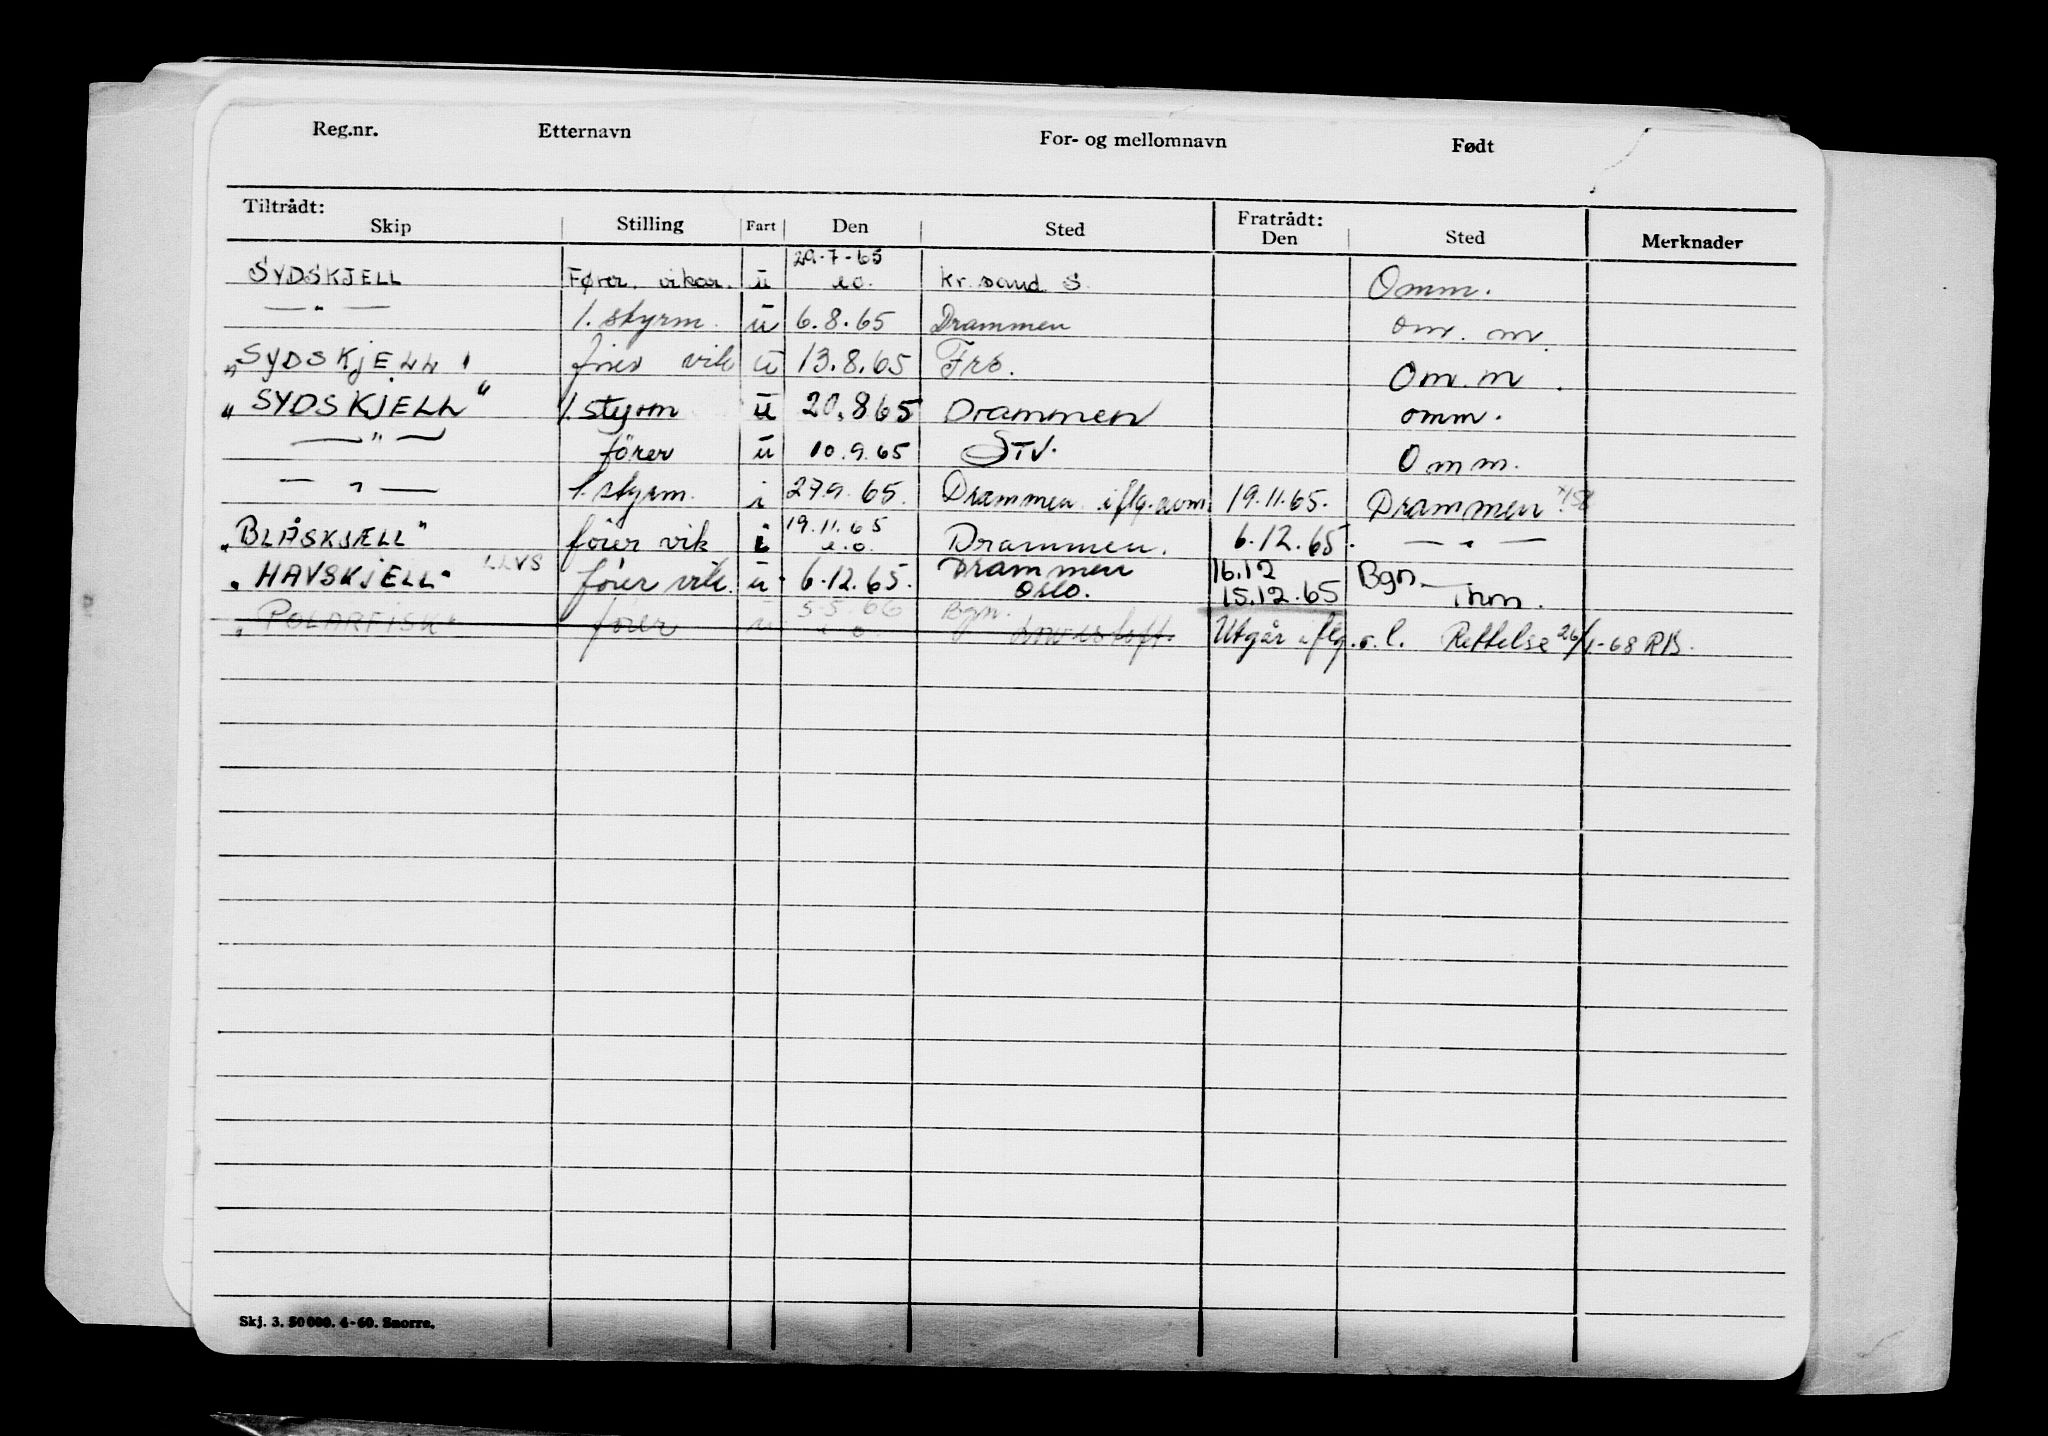 Reg.nr. Etternavn For- og mellomnavn Født
Tiltrådt: Fratrådt:
Skip Stilling Fart Den Sted Den Sted Merknader
SYDSKJELL Fører. vikar. u 29.-7-65 e.o. Kr. sand. S. Omm.
— " — 1. styrm. u 6.8.65 Drammen om. m.
"SYDSKJELL" fører vik u 13.8.65 Om. m.
"SYDSKJELL" 1. styrm u 20.865 Drammen omm.
— " — fører u 10.9.65 STV. Omm.
— " — 1. styrm. i 27.9.65. Drammen iflg. 19.11.65. Drammen
"BLÅSKJELL" fører vik i 19.11.65 e.o. Drammen. 6.12.65. — " —
"HAVSKJELL" LLVS fører vik. u 6.12.65. Drammen Oslo. 16.12 15.12.65 Bgn.
"POLARFISK" fører u 5-5-66 e.o. Bgn. Utgår iflg. o.l. Rettelse 26/1-68 RB.
Skj. 3. 50 000. 4-60. Snorre.